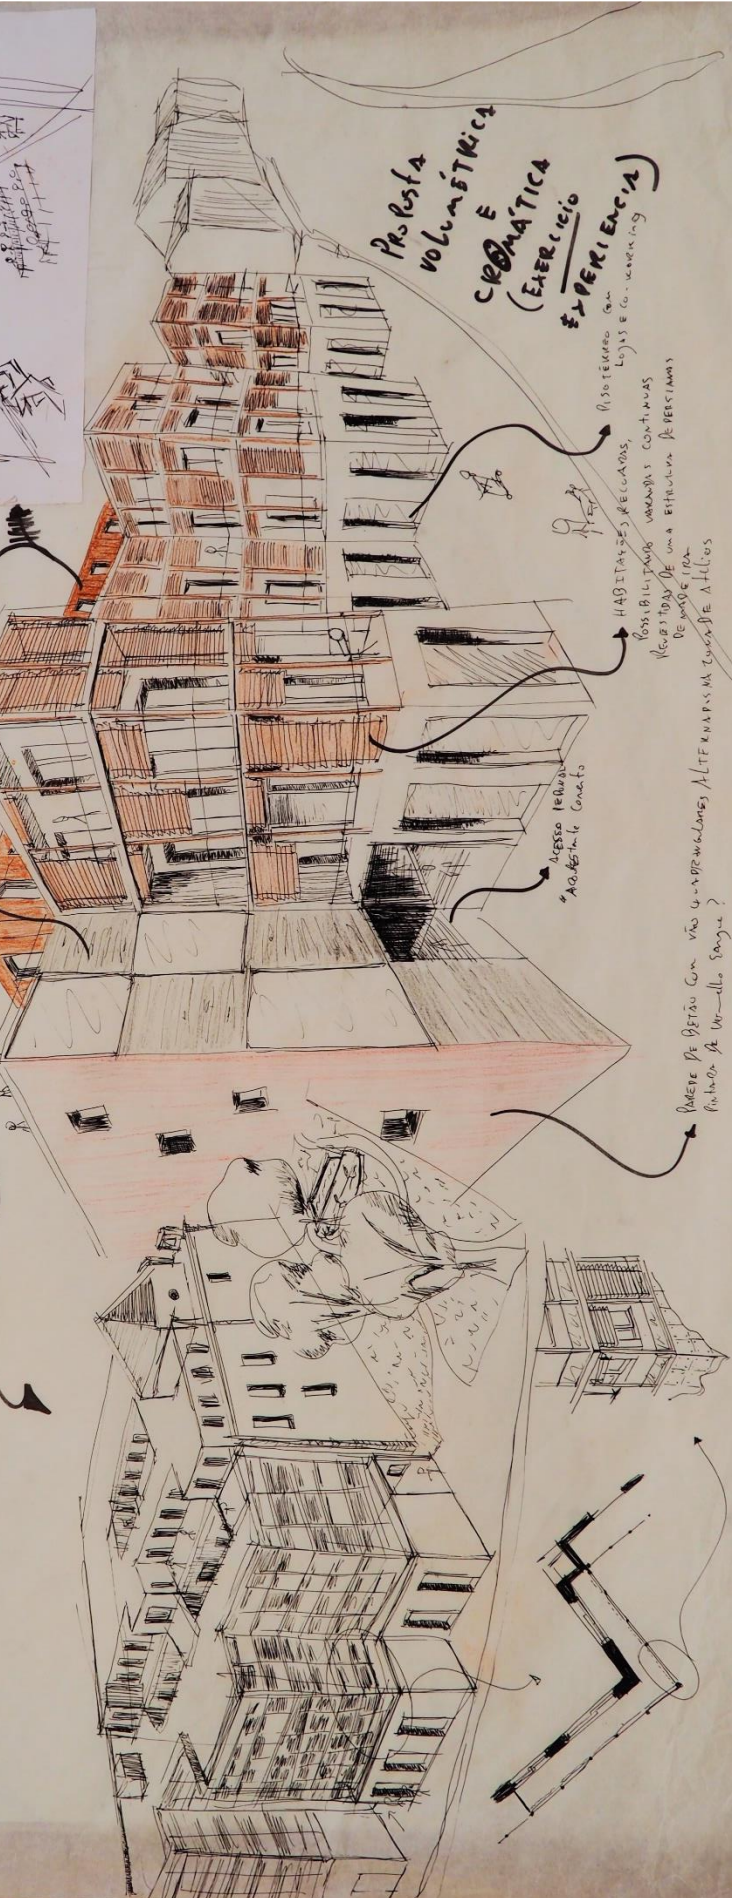 PROPOSTA
VOLUMÉTRICA
E
CROMÁTICA
(EXERCICIO
EXPERIENCIA)
PISO TÉRREO COM
LOJAS E CO-WORKING
HABITAÇÕES RECUADAS,
POSSIBILITANDO VARANDAS CONTINUAS
REVESTIDAS DE UMA ESTRUTURA DE PERSIANAS
DE MADEIRA
ACESSO PEDONAL
PAREDE DE BETÃO COM VÃO QUADRANGULARES ALTERNADOS NA ZONA DE ATELIOS
Pintura de vermelho sangue ?